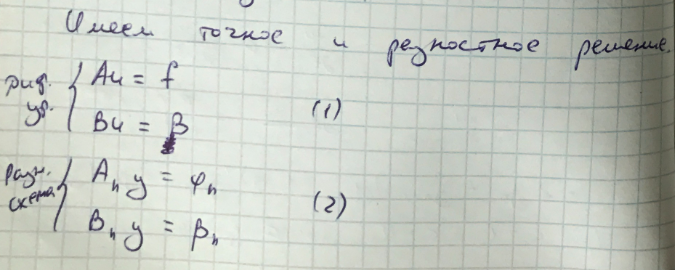 Имеем точное и разностное решение.
диф. ур. { Au = f
Bu = β (1)
Разн. схема { Aₕ y = φₕ
Bₕ y = βₕ (2)